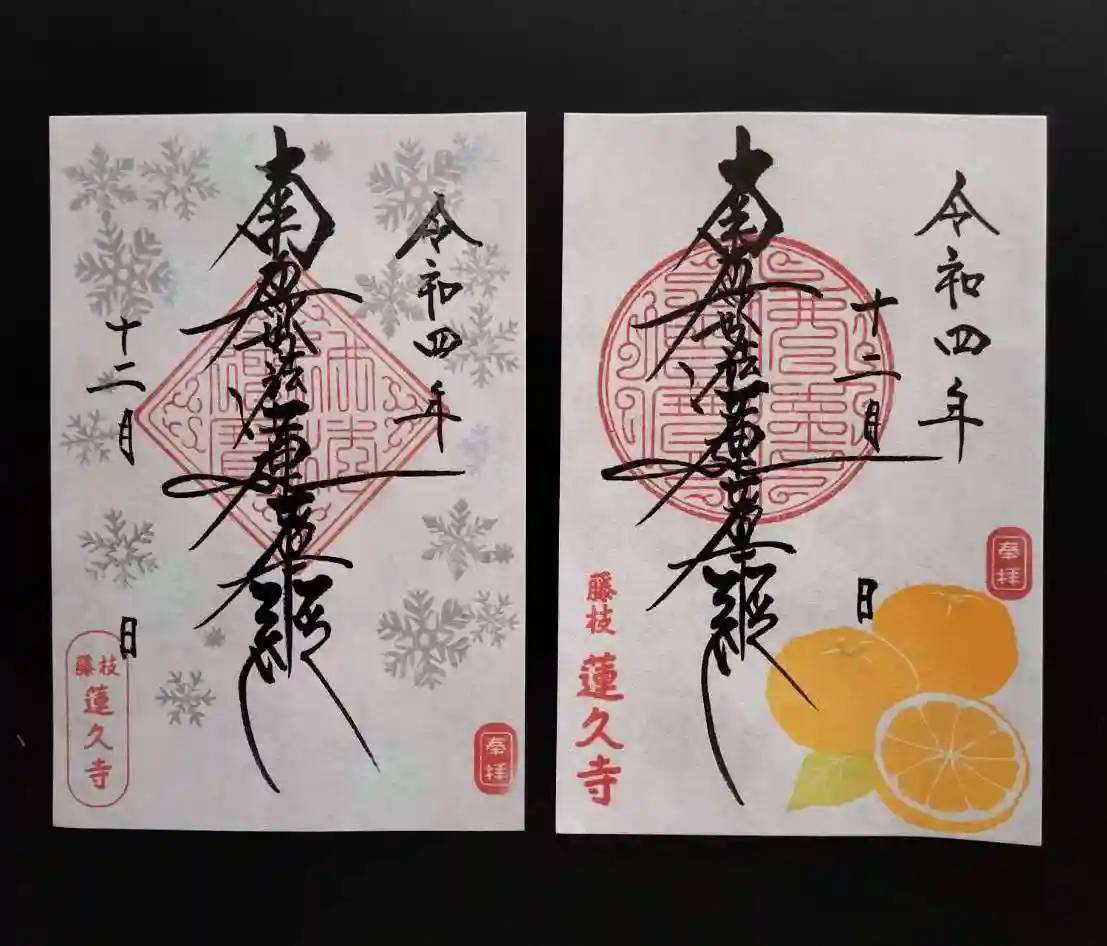 令和四年
南無妙法蓮華経
十二月
日
藤枝
蓮久寺
奉拝
令和四年
十二月
日
南無妙法蓮華経
奉拝
藤枝
蓮久寺